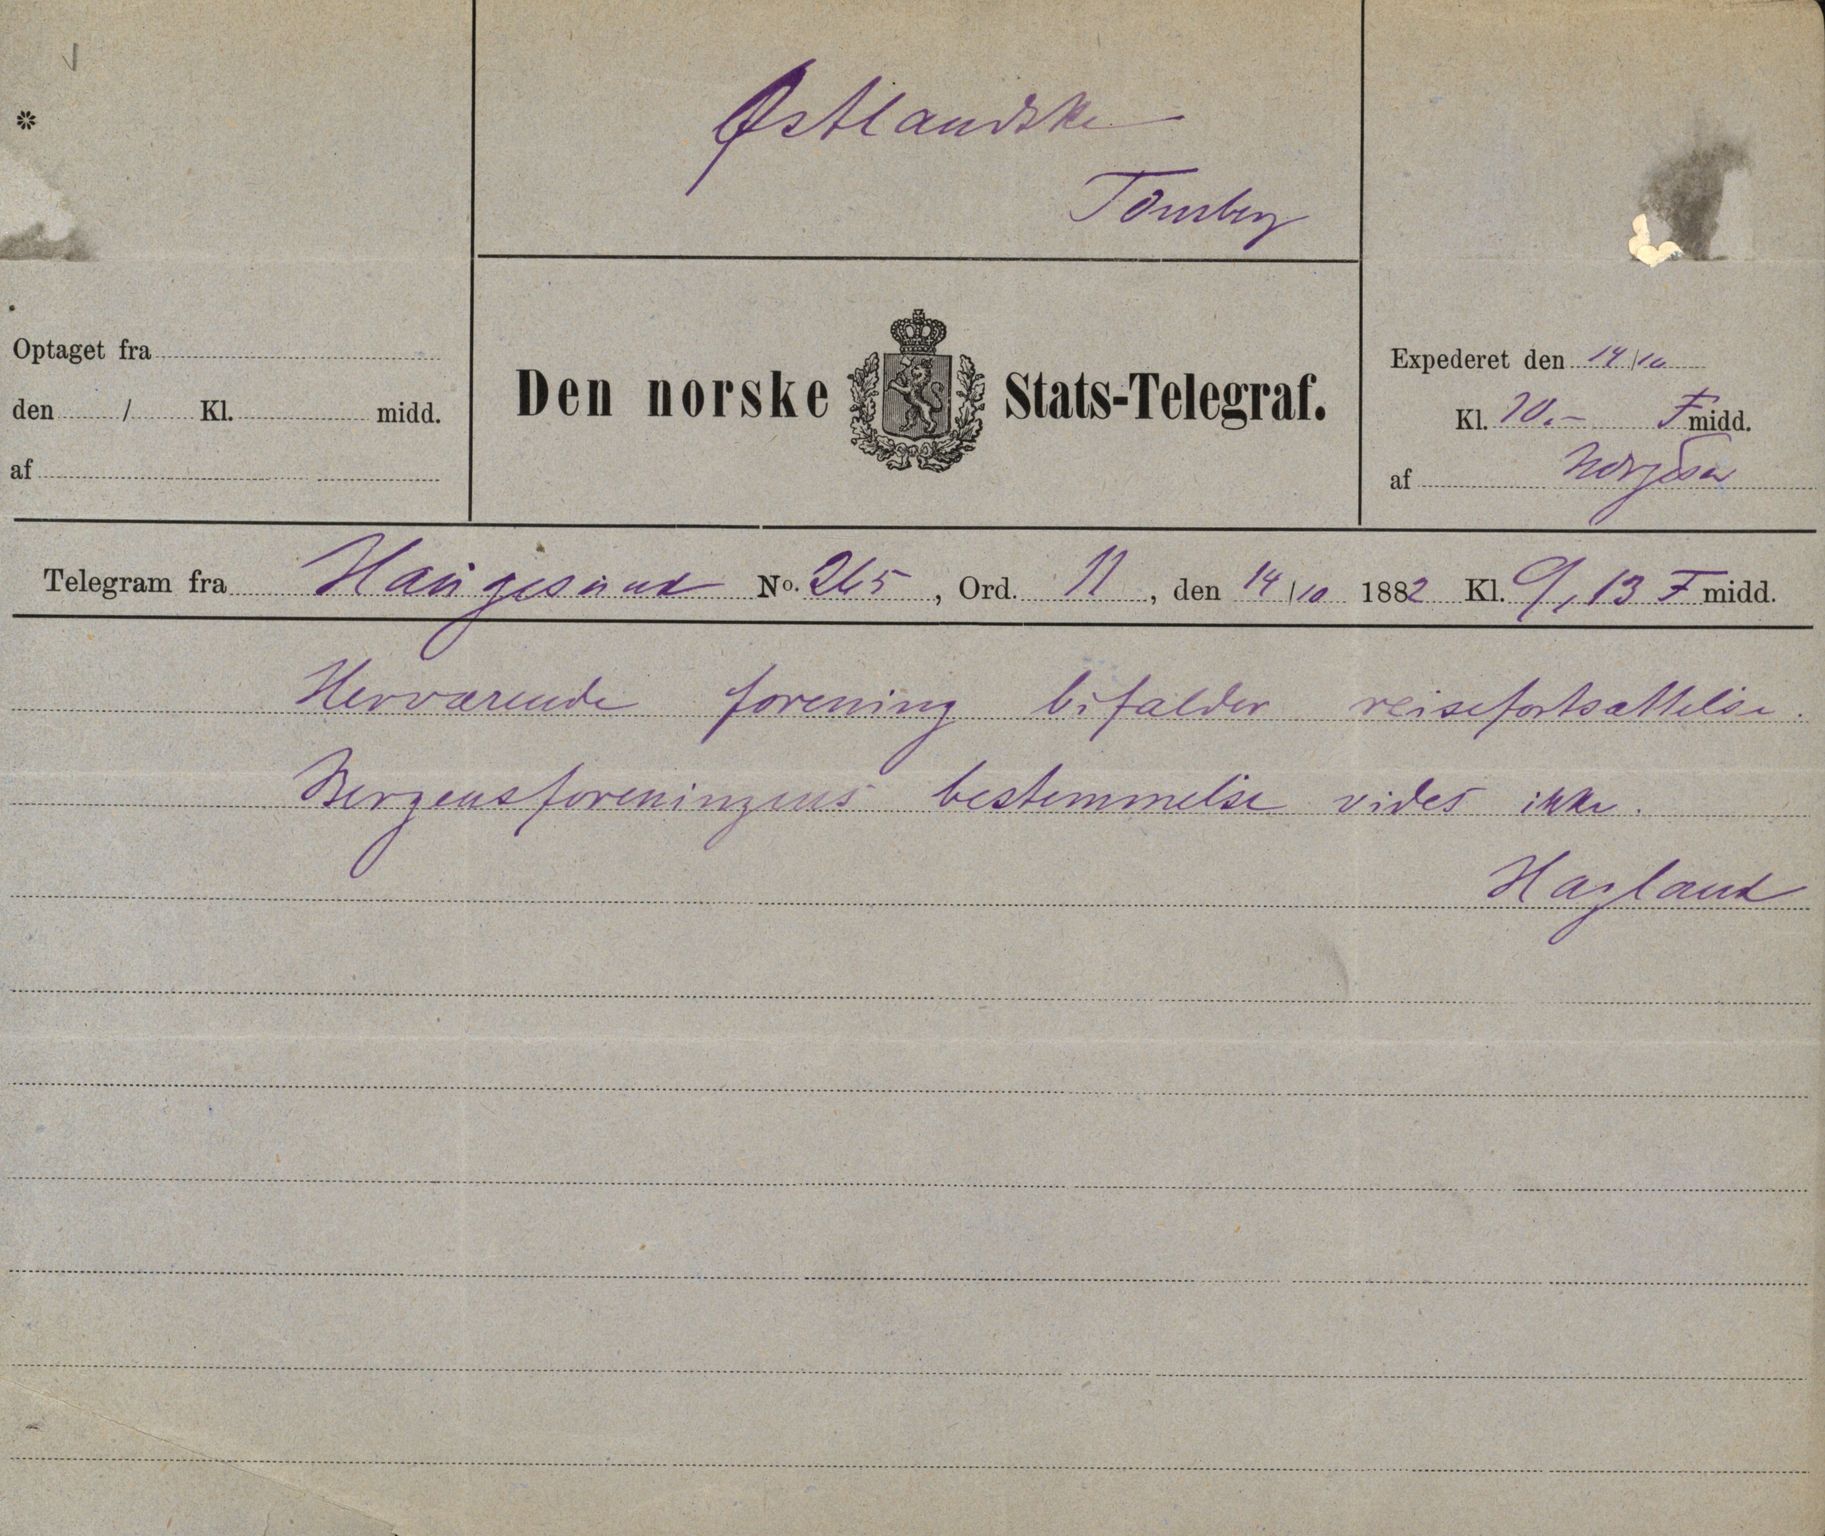 Østlandske
Tönsberg
Optaget fra
den / Kl. midd.
af
Den norske Stats-Telegraf.
Expederet den 14/10
Kl. 10.– F midd.
af
Telegram fra Haugesund No. 265, Ord. 11, den 14/10 1882 Kl. 9,13 F midd.
Herværende forening bifalder reisefortsættelse.
Bergensforeningens bestemmelse vides ikke.
Hagland